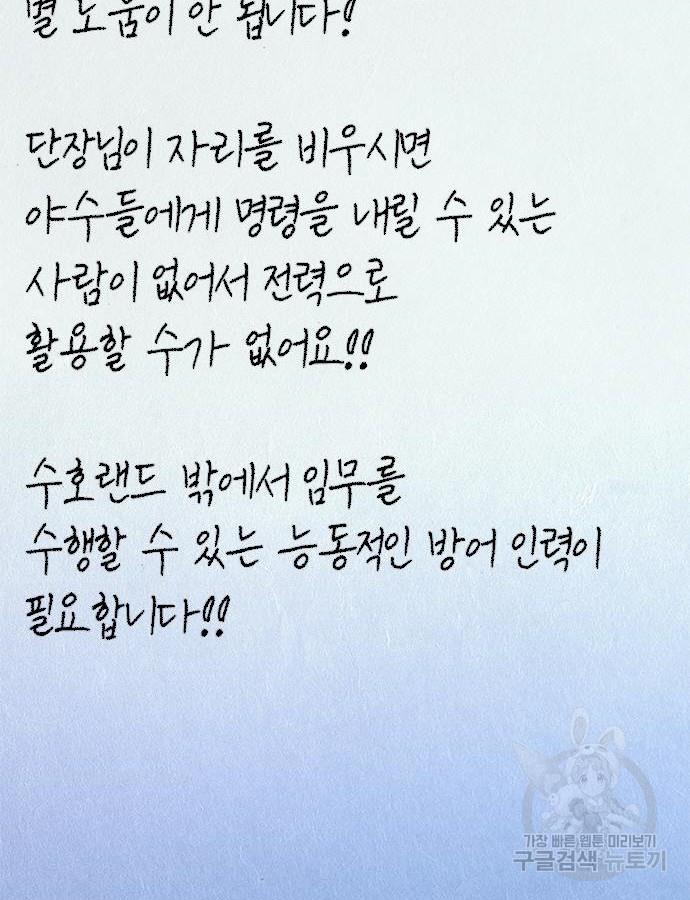 별 도움이 안 됩니다!
단장님이 자리를 비우시면
야수들에게 명령을 내릴 수 있는
사람이 없어서 전력으로
활용할 수가 없어요!!
수호랜드 밖에서 임무를
수행할 수 있는 능동적인 방어 인력이
필요합니다!!
가장 빠른 웹툰 미리보기
구글검색 뉴토끼